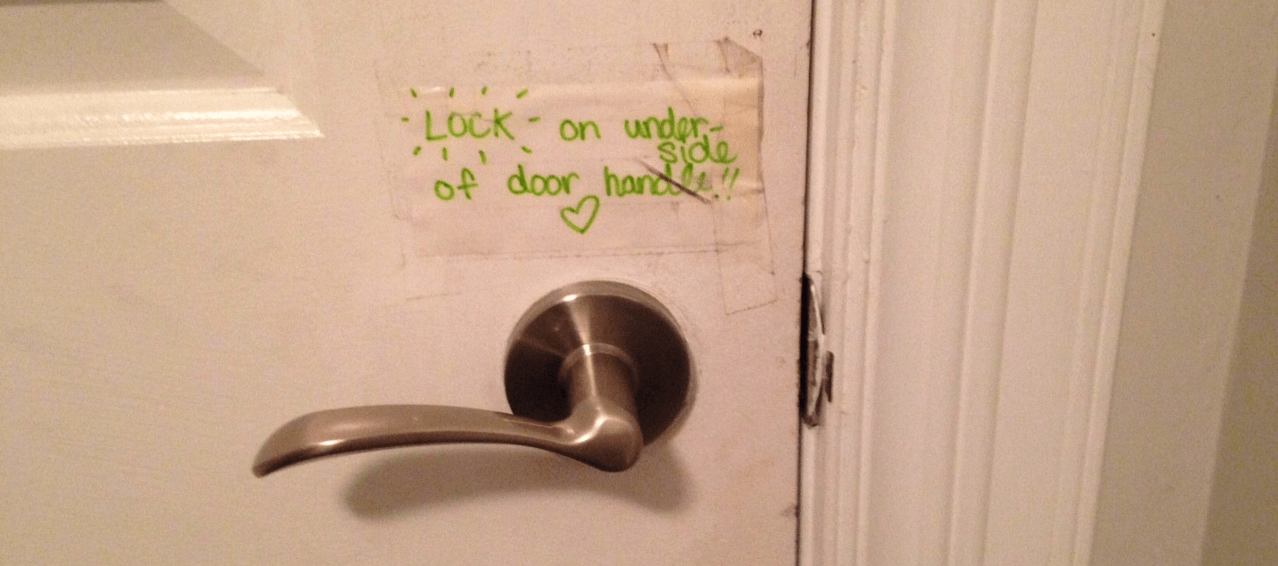 LOCK - on under-
side
of door handle!!